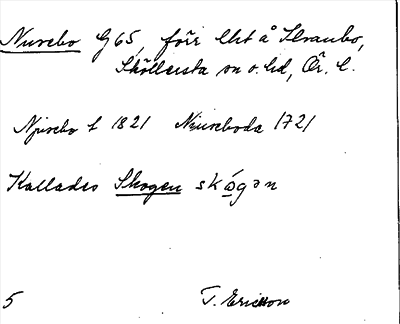 Nurebo G65, förr lht å Skranbo,
Sköllersta sn o. hd, Ör. l.
Njurebo f 1821 Niureboda 1721
Kallades Skogen skógən
5 T. Ericsson